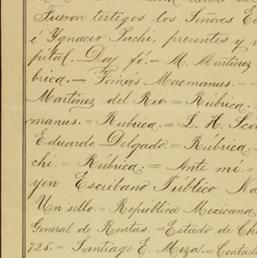 Fueron testigos los Señores
é Ygnacio Puchi, presentes y
pital. Doy fe. = M. Martinez
brica. = Tomás Macmanus. =
Martinez del Rio = Rubrica.
manus. = Rubrica. = L. H. Sco
Eduardo Delgado. = Rúbrica.
chi. = Rúbrica. = Ante mí =
yon Escribano Público Na
Un sello. = República Mexicana
General de Rentas. = Estado de Ch
725. = Santiago E. Meza. = Contad